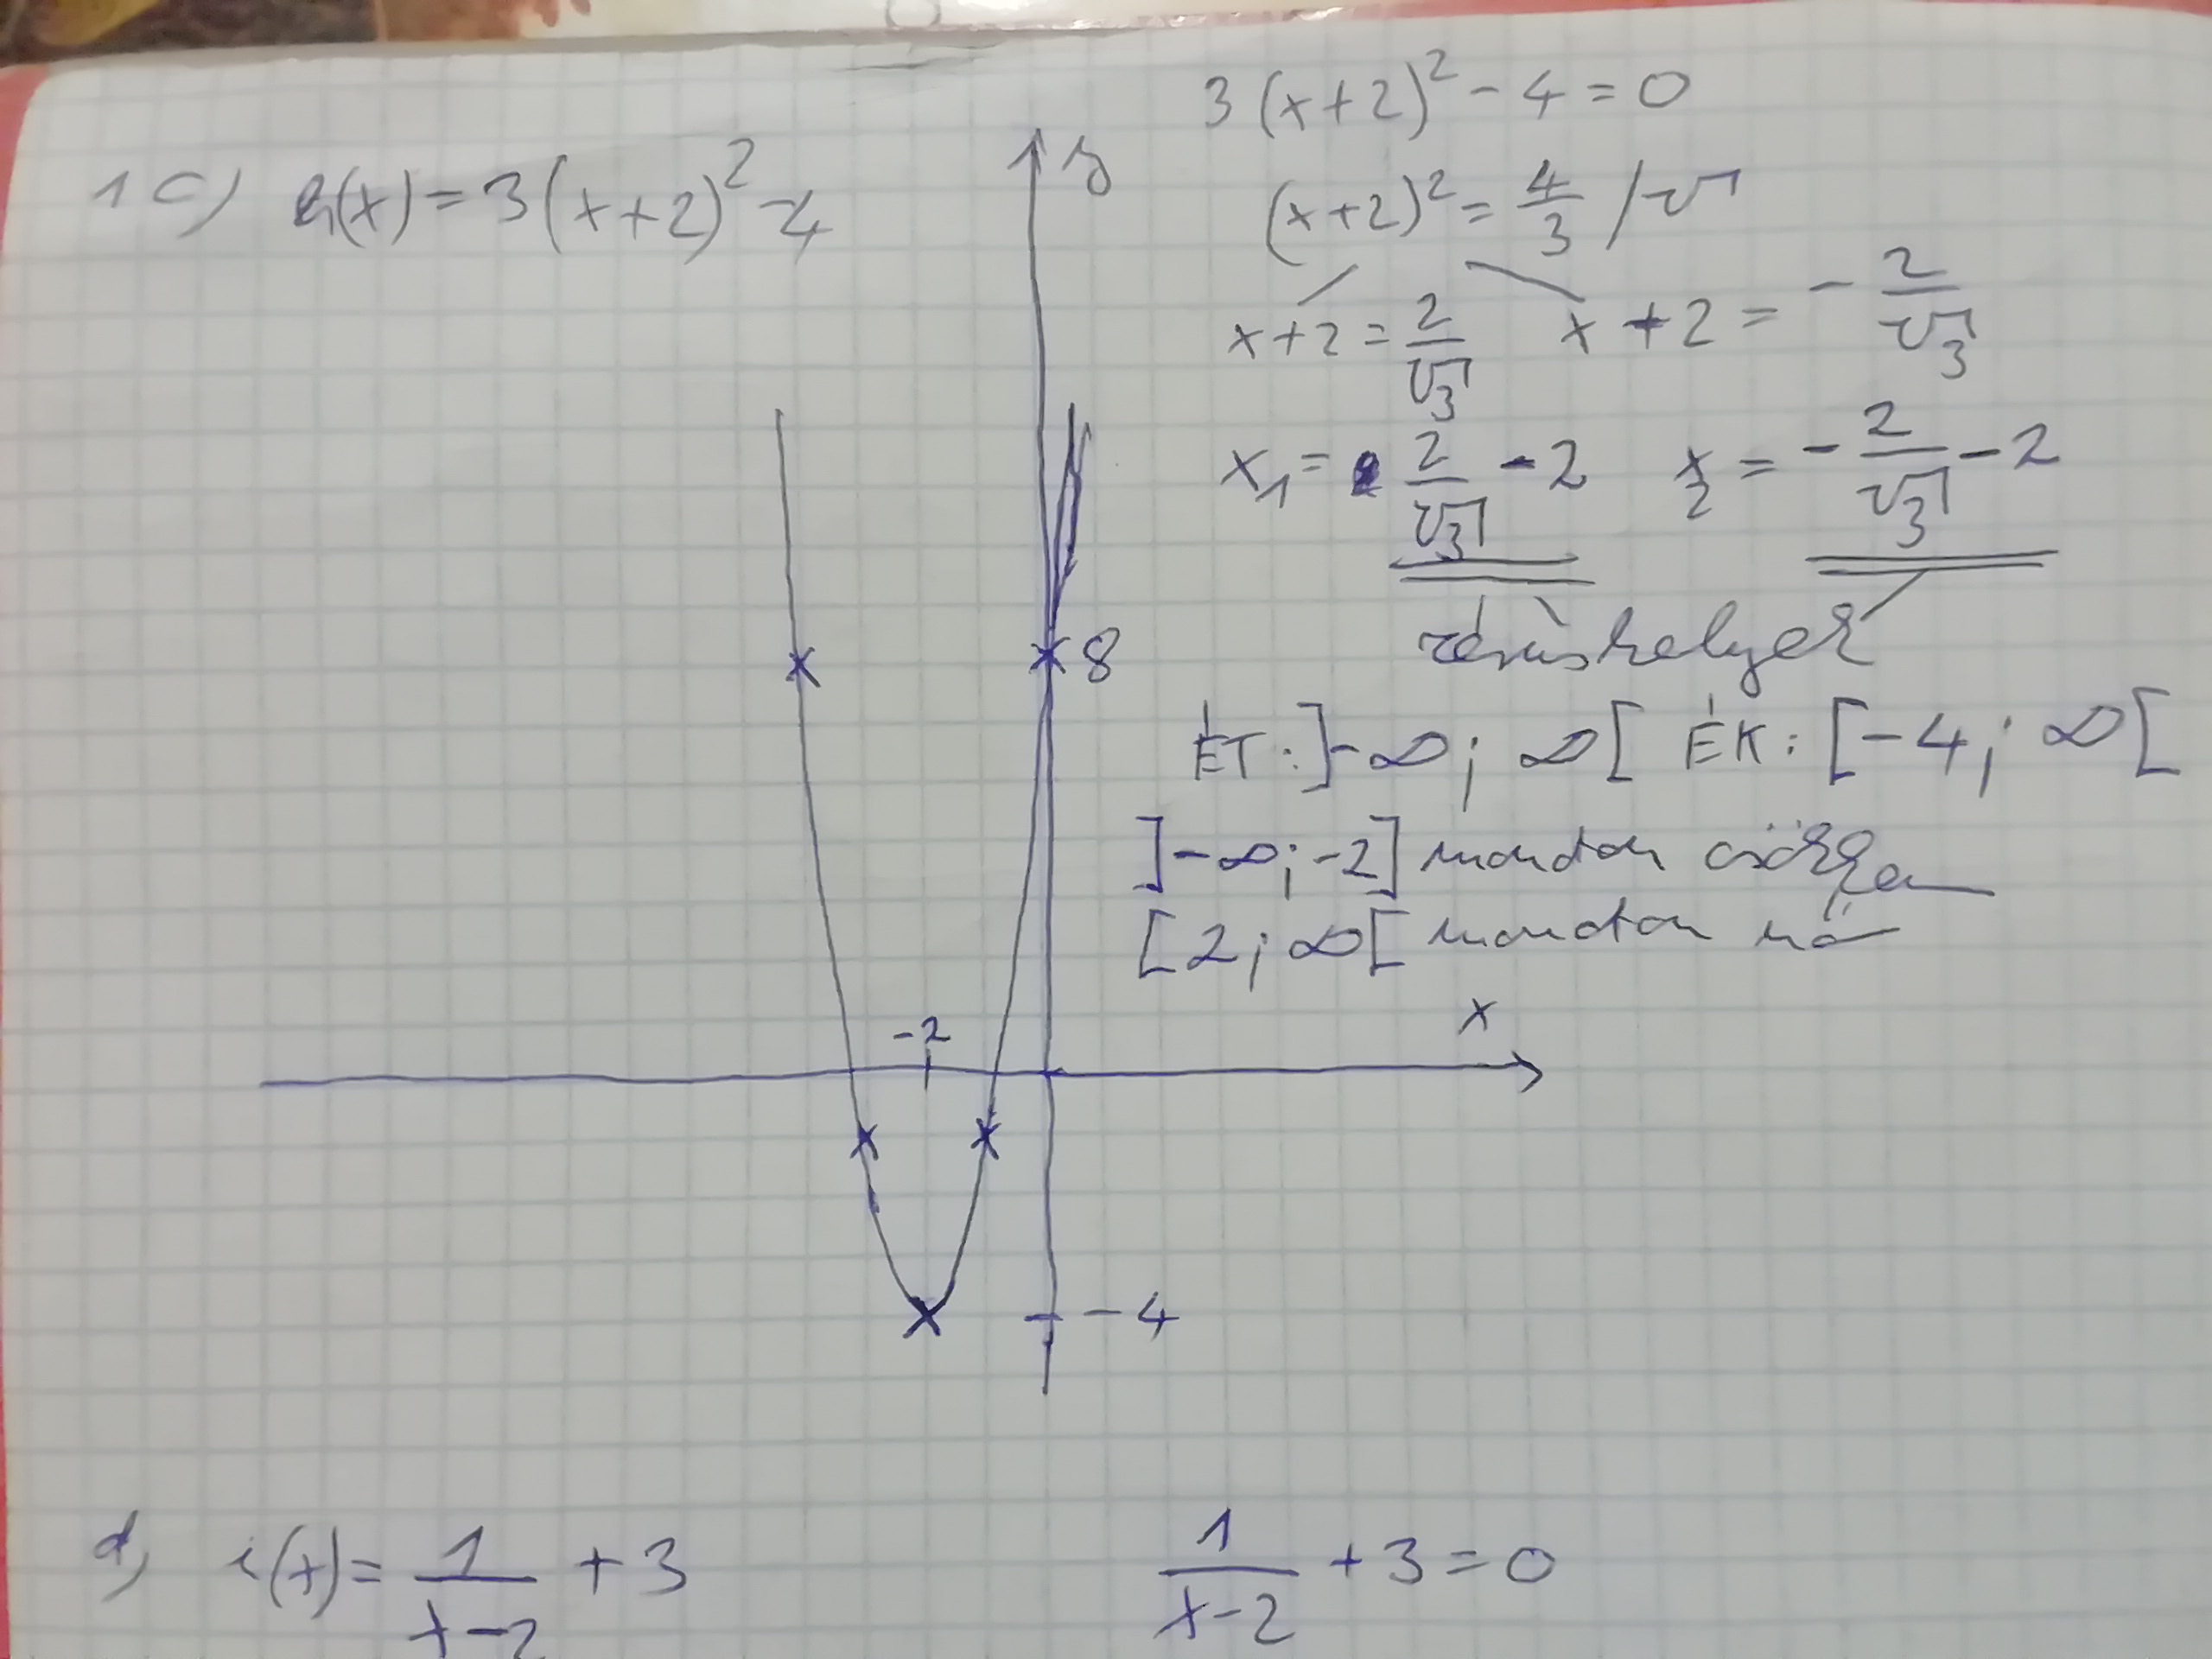 1 c) h(x) = 3(x+2)² - 4
y
3(x+2)² - 4 = 0
(x+2)² = 4/3 /√
x+2 = 2/√3 x+2 = - 2/√3
x₁ = 2/√3 - 2 x₂ = - 2/√3 - 2
zérushelyek
8
ÉT: ]-∞; ∞[ ÉK: [-4; ∞[
]-∞; -2] monoton csökken
[2; ∞[ monoton nő
-2
x
-4
d) i(x) = 1/(x-2) + 3
1/(x-2) + 3 = 0